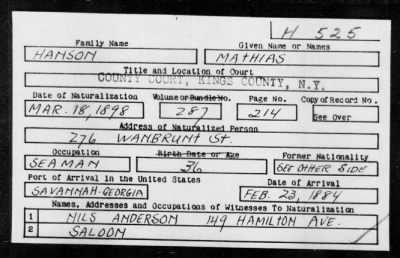 H 525
Family Name Given Name or Names
HANSON MATHIAS
Title and Location of Court
COUNTY COURT, KINGS COUNTY, N.Y.
Date of Naturalization Volume or Bundle No. Page No. Copy of Record No.
MAR. 18, 1898 287 214 See Over
Address of Naturalized Person
276 VANBRUNT St.
Occupation Birth Date or Age Former Nationality
SEAMAN 36 SEE OTHER SIDE
Port of Arrival in the United States Date of Arrival
SAVANNAH-GEORGIA FEB. 23, 1884
Names, Addresses and Occupations of Witnesses To Naturalization
1 NILS ANDERSON 149 HAMILTON AVE.
2 SALOON